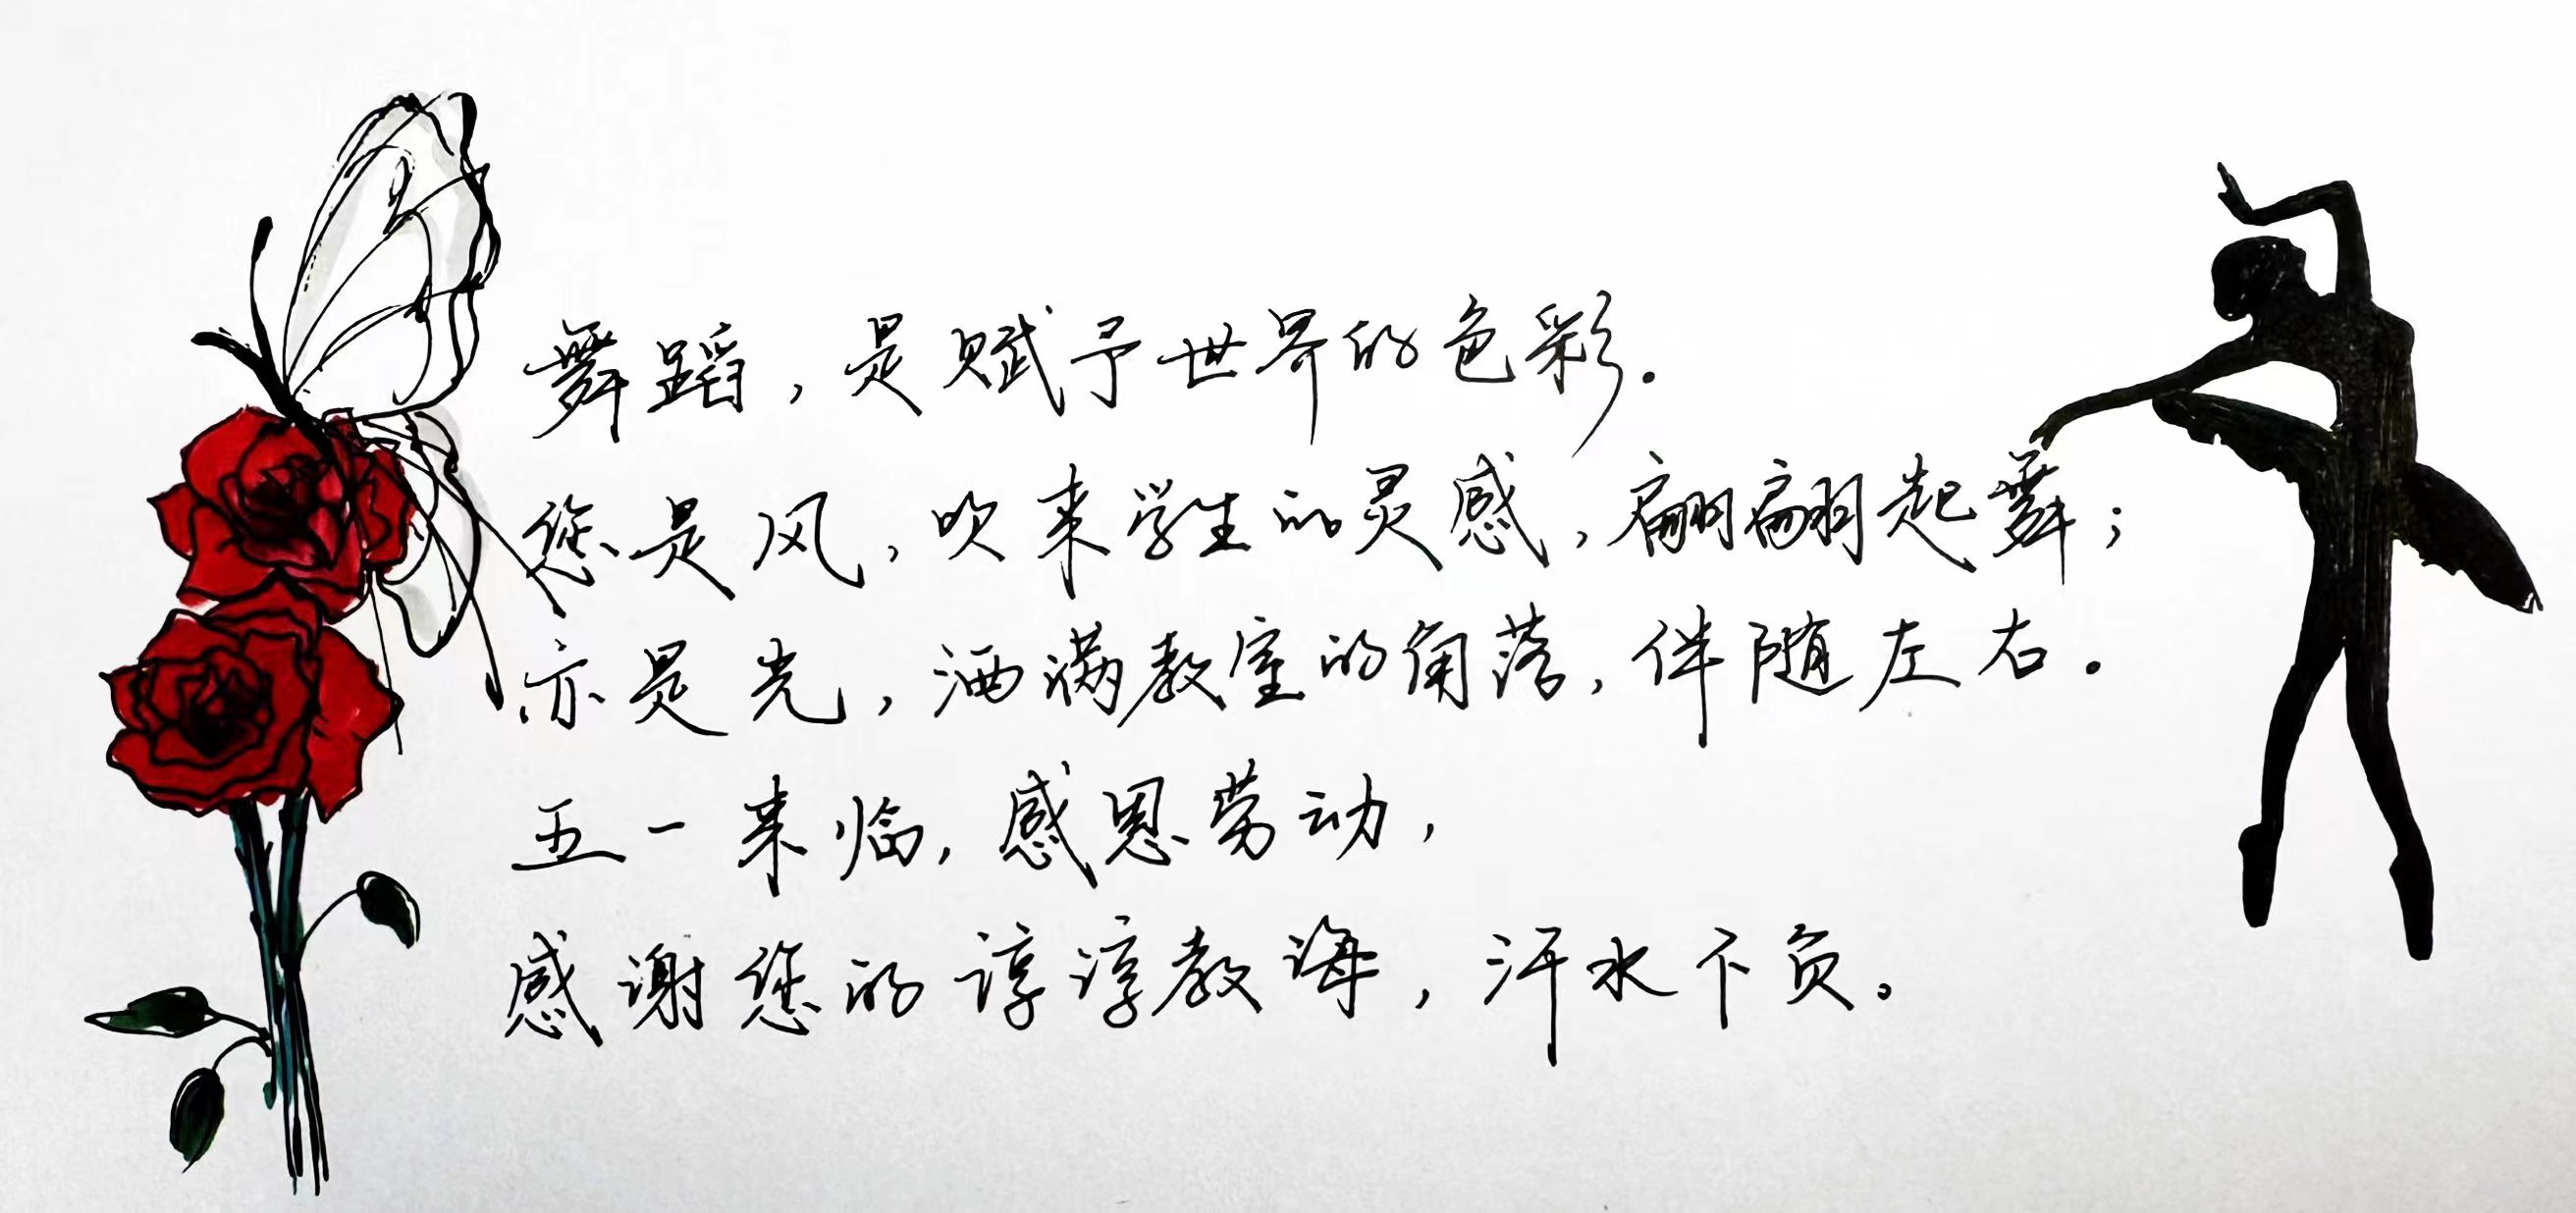 舞蹈，是赋予世界的色彩.
您是风，吹来学生的灵感，翩翩起舞；
亦是光，洒满教室的角落，伴随左右.
五一来临，感恩劳动，
感谢您的谆谆教诲，汗水不负。